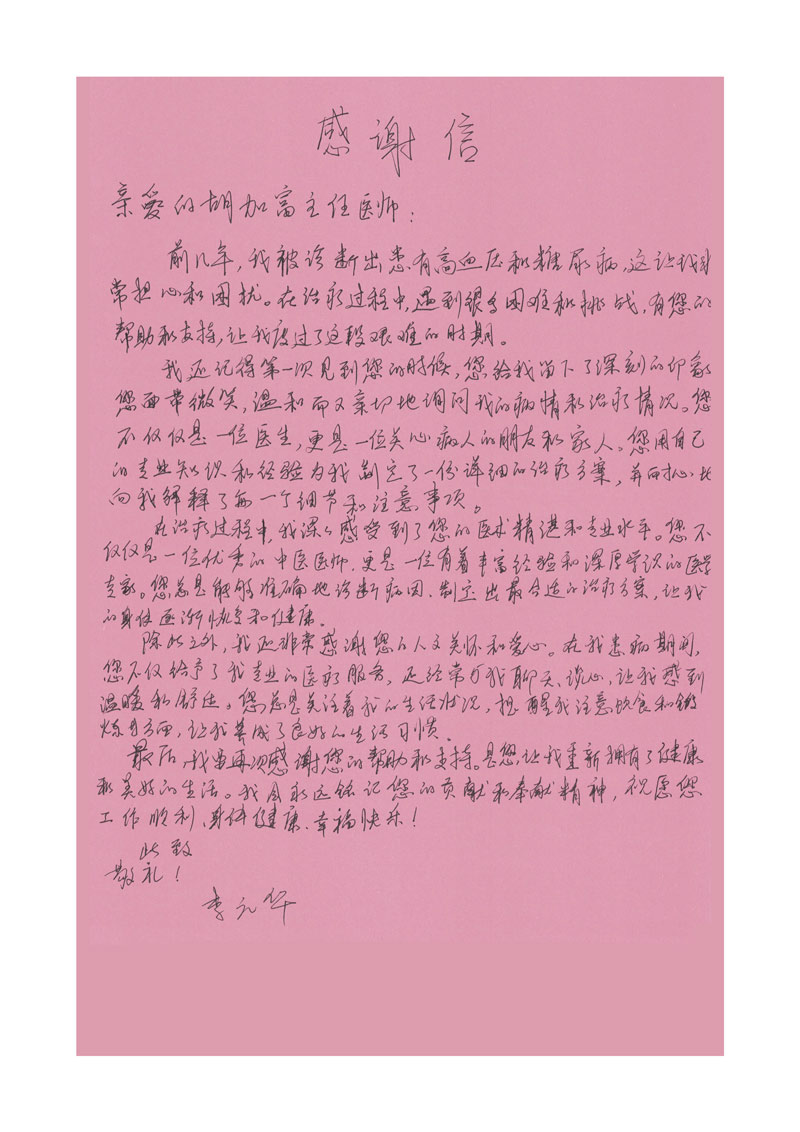 感谢信
亲爱的胡加富主任医师:
前几年,我被诊断出患有高血压和糖尿病,这让我非
常担心和困扰。在治疗过程中,遇到很多困难和挑战,有您的
帮助和支持,让我度过了这段艰难的时期。
我还记得第一次见到您的时候,您给我留下了深刻的印象
您面带微笑,温和而又亲切地询问我的病情和治疗情况。您
不仅仅是一位医生,更是一位关心病人的朋友和家人。您用自己
的专业知识和经验为我制定了一份详细的治疗方案,并耐心地
向我解释了每一个细节和注意事项。
在治疗过程中,我深深感受到了您的医术精湛和专业水平。您不
仅仅是一位优秀的中医医师,更是一位有着丰富经验和深厚学识的医学
专家。您总是能够准确地诊断病因、制定出最合适的治疗方案,让我
的身体逐渐恢复和健康。
除此之外,我还非常感谢您的人文关怀和爱心。在我患病期间,
您不仅给予了我专业的医疗服务,还经常与我聊天、谈心,让我感到
温暖和舒适。您总是关注着我的生活状况,提醒我注意饮食和锻
炼方面,让我养成了良好的生活习惯。
最后,我要再次感谢您的帮助和支持。是您,让我重新拥有了健康
和美好的生活。我会永远铭记您的贡献和奉献精神,祝愿您
工作顺利、身体健康、幸福快乐!
此致
敬礼!
李元华